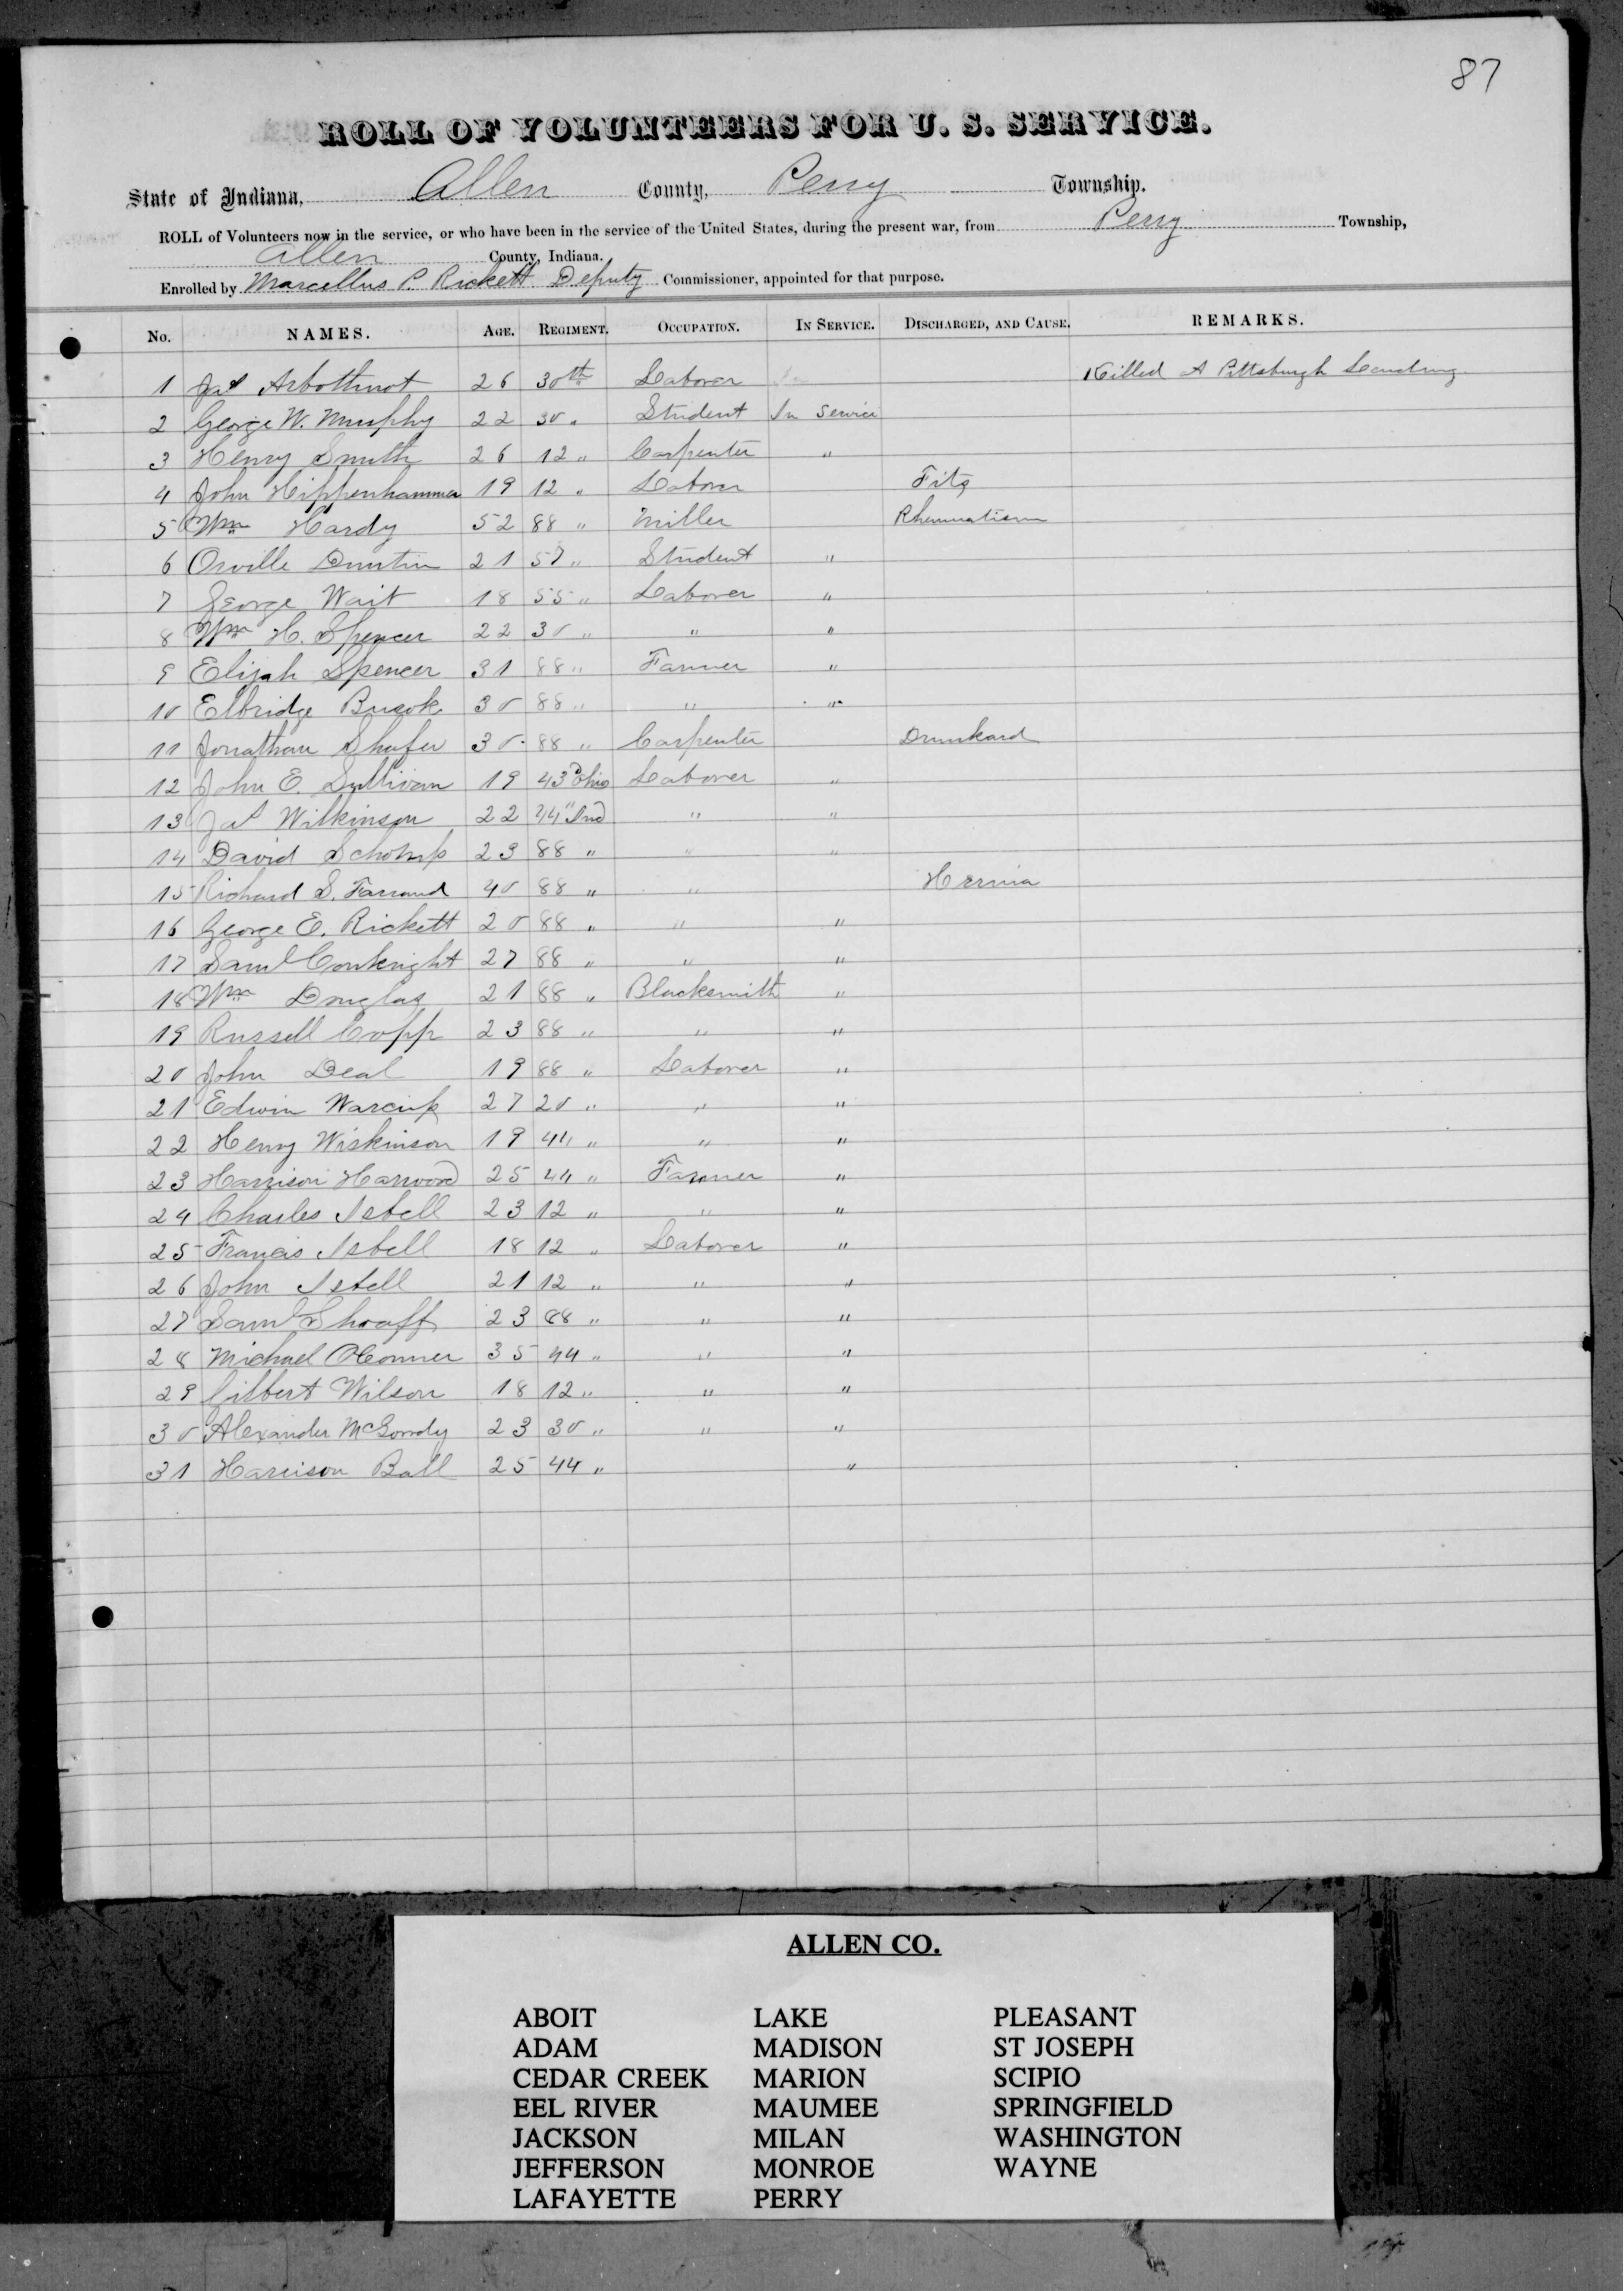 87
ROLL OF VOLUNTEERS FOR U. S. SERVICE.
State of Indiana, Allen County, Perry Township.
ROLL of Volunteers now in the service, or who have been in the service of the United States, during the present war, from Perry Township,
Allen County, Indiana.
Enrolled by Marcellus P. Rickett Deputy Commissioner, appointed for that purpose.
No. NAMES. AGE. REGIMENT. OCCUPATION. IN SERVICE. DISCHARGED, AND CAUSE. REMARKS.
1 Jas Arbothnot 26 30th Laborer Killed A Pittsburgh Landing
2 George W. Murphy 22 30 " Student In Service
3 Henry Smith 26 12 " Carpenter "
4 John Hippenhammer 19 12 " Laborer Fits
5 Wm Hardy 52 88 " Miller Rheumatism
6 Orville Duntin 21 57 " Student "
7 George Wait 18 55 " Laborer "
8 Wm H. Spencer 22 30 " " "
9 Elijah Spencer 31 88 " Farmer "
10 Elbridge 30 88 " " "
11 Jonathan Shafer 30 88 " Carpenter Drunkard
12 John E. Sullivan 19 43d Ohio Laborer "
13 Jas Wilkinson 22 44" Ind " "
14 David Schomp 23 88 " " "
15 Richard S. Farrand 40 88 " " Hernia
16 George E. Rickett 20 88 " " "
17 Saml Conkright 27 88 " " "
18 Wm Douglas 21 88 " Blacksmith "
19 Russell Copp 23 88 " " "
20 John Deal 19 88 " Laborer "
21 Edwin Warcup 27 20 " " "
22 Henry Wiskinson 19 44 " " "
23 Harrison Harwood 25 44 " Farmer "
24 Charles Isbell 23 12 " " "
25 Francis Isbell 18 12 " Laborer "
26 John Isbell 21 12 " " "
27 Saml Shoaff 23 88 " " "
28 Michael OConner 35 44 " " "
29 Gilbert Wilson 18 12 " " "
30 Alexander 23 30 " " "
31 Harrison Ball 25 44 " "
ALLEN CO.
ABOIT LAKE PLEASANT
ADAM MADISON ST JOSEPH
CEDAR CREEK MARION SCIPIO
EEL RIVER MAUMEE SPRINGFIELD
JACKSON MILAN WASHINGTON
JEFFERSON MONROE WAYNE
LAFAYETTE PERRY